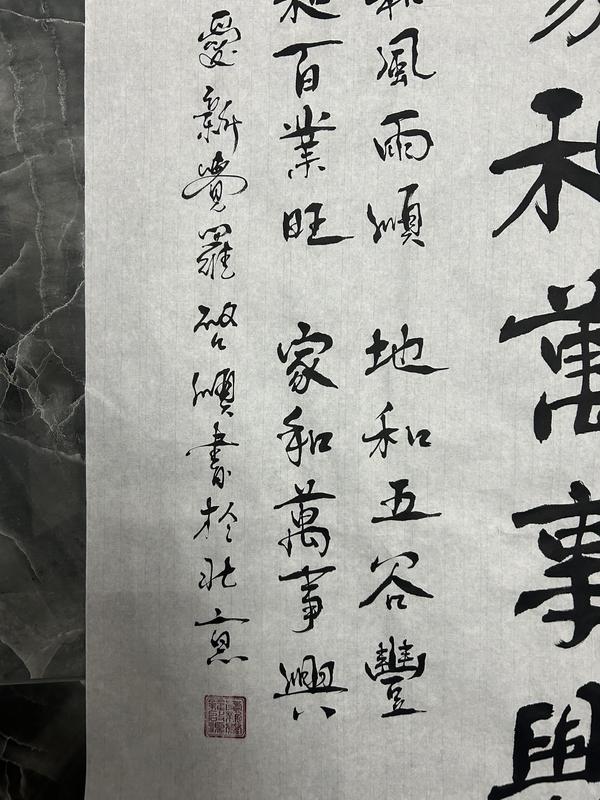 家和萬事興
和風雨順 地和五谷豐
和百業旺 家和萬事興
愛新覺羅啓順書於北京